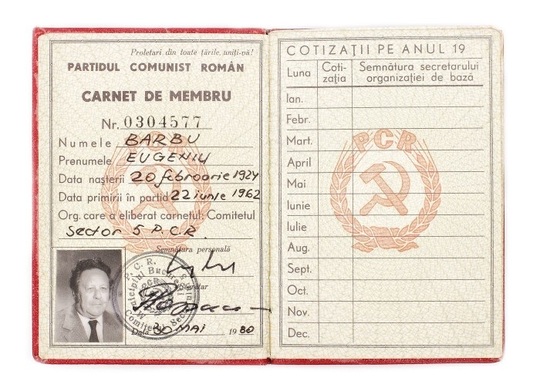 Proletari din toate țările, uniți-vă!
PARTIDUL COMUNIST ROMÂN
CARNET DE MEMBRU
Nr. 0304577
Numele BARBU
Prenumele EUGENIU
Data nașterii 20 februarie 1924
Data primirii în partid 22 iunie 1962
Org. care a eliberat carnetul: Comitetul
Sector 5 P.C.R
Semnătura personală
P. C. R.
Data 30 MAI 1980
COTIZAȚII PE ANUL 19
Luna Coti-zația Semnătura secretarului organizației de bază
PCR
Ian.
Febr.
Mart.
April
Mai
Iunie
Iulie
Aug.
Sept.
Oct.
Nov.
Dec.